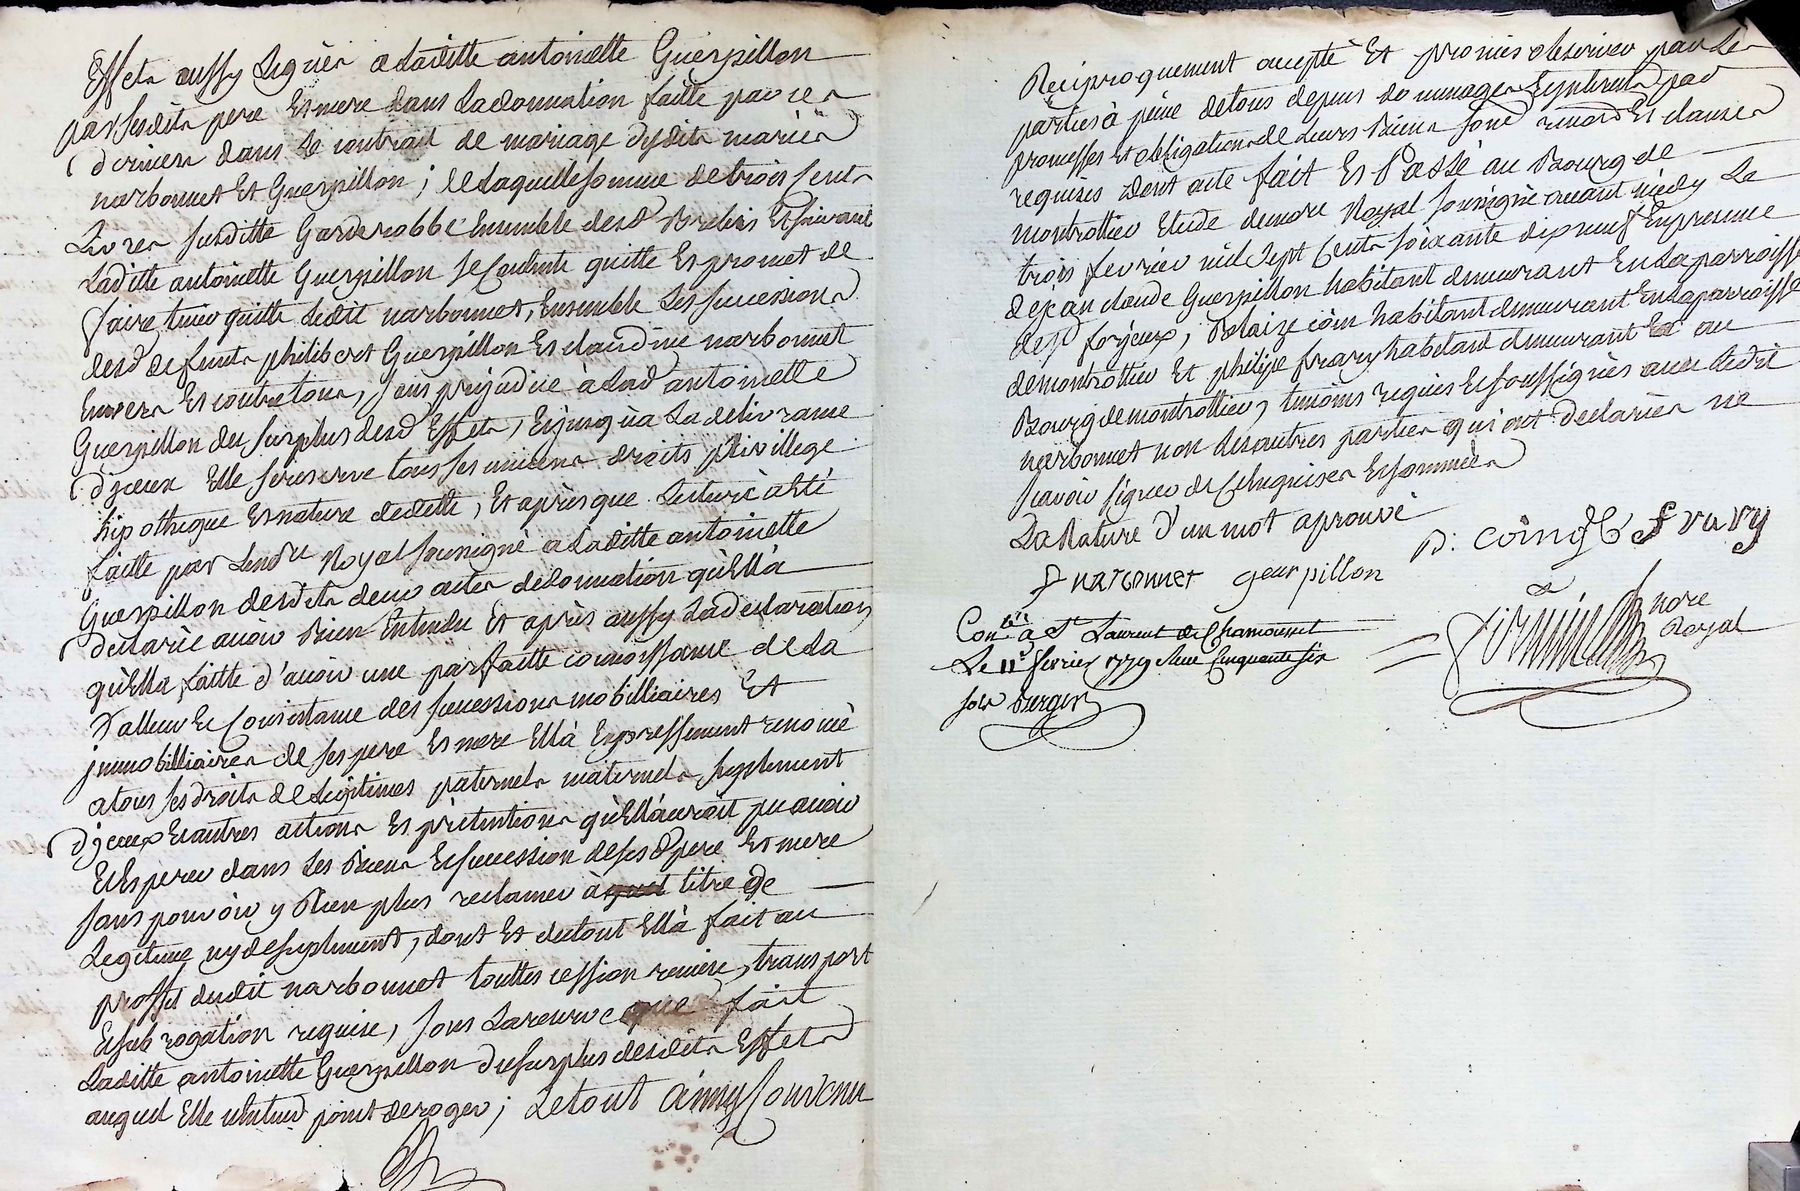 Effets aussy Legués a Laditte antoinette Guerpillon
par sesdits pere Et mere dans La donnation faitte par ces
derniers dans Le contrait de mariage desdits mariés
narbonnet Et Guerpillon; de laquelle somme de trois Cents
Livres susditte Garderobbe Ensemble desd. Brebis Et suivant
Laditte antoinette Guerpillon se Contente quitte Et promet de
faire tenir quitte Ledit narbonnet, Ensemble Les successions
desd. defunts philibert Guerpillon Et claudine narbonnet
Envers Et contre tous, sans prejudice à Lad. antoinette
Guerpillon du surplus desd. Effets, Et jusqu'a La delivrance
d'jceux Elle se reserve tous ses anciens droits privillege
hipotheque Et nature de dette, Et après que Lecture a Eté
faitte par Le nore Royal soussigné a Laditte antoinette
Guerpillon desdits deux actes de donnation qu'Ell'a
declaréé avoir Bien Entendu Et après aussy La declaration
qu'Ell'a faitte d'avoir une parfaitte connoissance de La
valleur Et Consistance des successions mobilliaires Et
jmmobilliaires de ses pere Et mere Ell'a Expressement renoncé
a tous ses droits de Legitimes paternels maternels suplement
d'jceux Et autres actions Et prétentions qu'Ell'auroit pu avoir
Et Esperer dans Les Biens Et succession de ses d. pere Et mere
sans pouvoir y Rien plus reclamer à titre de
Legitime ny de suplement, dont Et du tout Ell'a fait au
proffit dudit narbonnet touttes cession remise, transport
Et subrogation requise, sous La reserve que fait
Laditte antoinette Guerpillon du surplus desdits Effets
auquel Elle n'Entend point deroger; Le tout ainsy Convenu
Reciproquement accepté Et promis observer par Les
parties à peine de tous depens dommages Et interets par
promesses Et obligations de Leurs Biens soumd. renond. Et clauses
requises dont acte fait Et Passé au Bourg de
montrottier Etude du nore Royal soussigné avant midy Le
trois fevrier mil sept Cents soixante dix neuf En presence
de jean claude Guerpillon habitant demeurant En La parroisse
de St forjeux, Blaize coin habitant demeurant En La parroisse
de montrottier Et philipe frary habitant demeurant au
Bourg de montrottier, temoins requis Et soussignés avec Ledit
narbonnet non Les autres parties qui ont declaréés ne
scavoir signer de Ce Enquises Et sommées
La Rature d'un mot aprouvé
narbonnet geurpillon B. coing frary
nore
Royal
Con.lé à St Laurent de Chamousset
Le 11e fevrier 1779 Cinquante six
sols